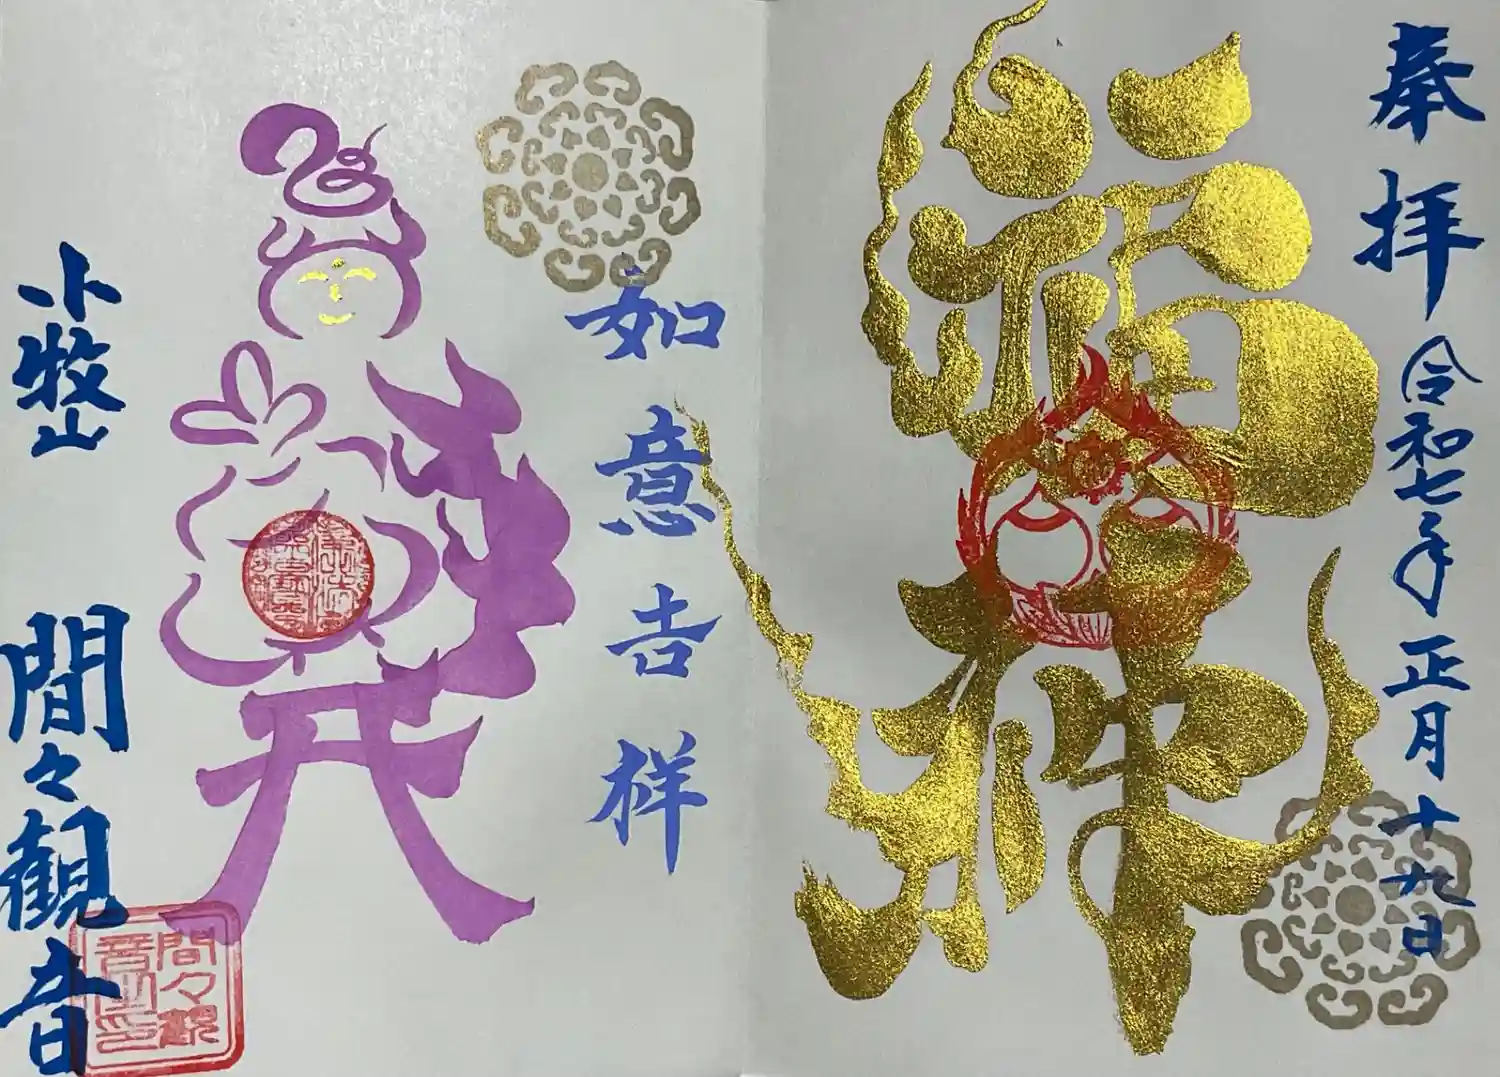 奉拝
令和七年正月十九日
福神
如意吉祥
小牧山
間々観音
間々観音之印